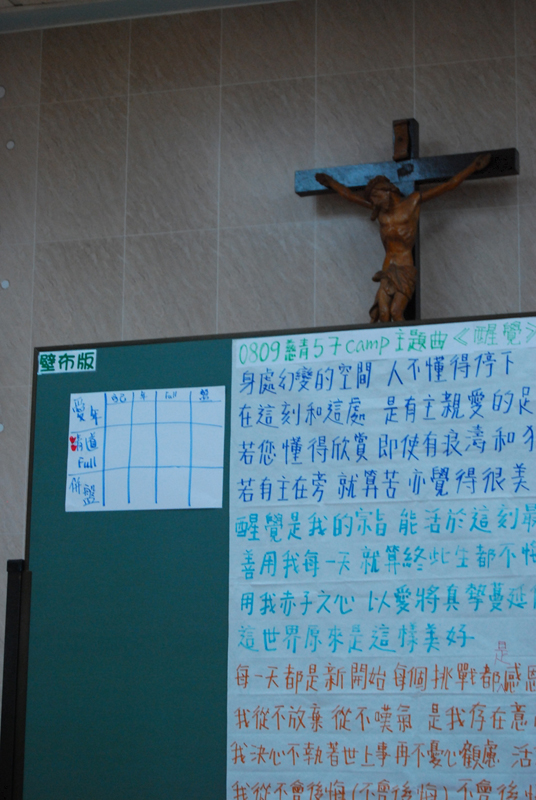 壁布版
0809慈青57camp主題曲《醒覺》
身處幻變的空間 人不懂得停下
在這刻和這處 是有主親愛的足
若您懂得欣賞 即使有浪濤和
若有主在旁 就算苦亦覺得很美
醒覺是我的宗旨 能活於這刻最
善用我每一天 就算終此生都不悔
用我赤子之心 以愛將真摯蔓延
這世界原來是這樣美好
是
每一天都是新開始 每個挑戰都感恩
我從不放棄 從不嘆氣 是我存在意
我決心不執著世上事再不憂心顧慮 活
我從不會後悔(不會後悔) 不會後悔
年 full
年
full
併盤